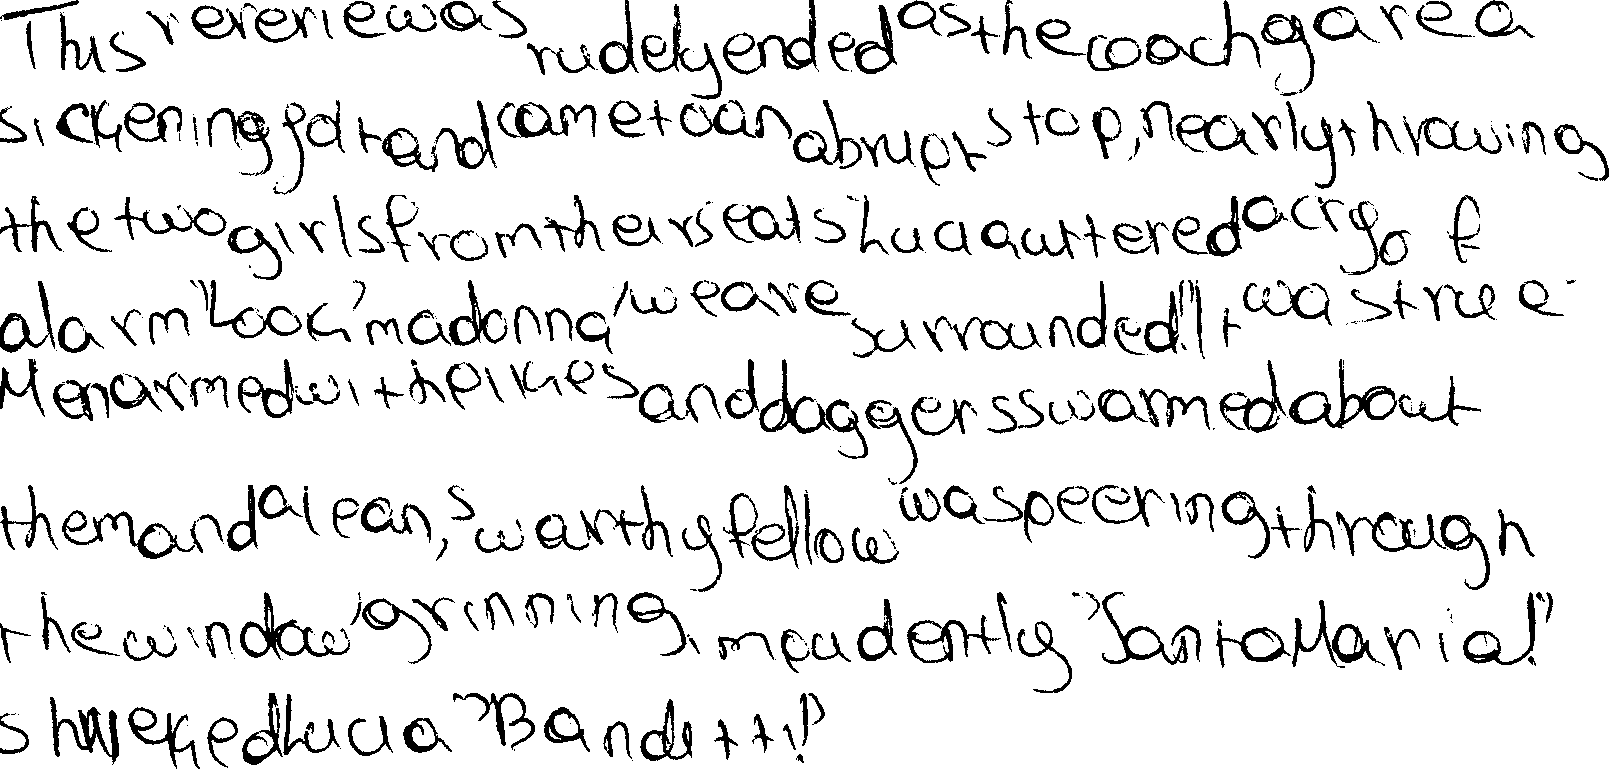 This reverie was rudely ended as the coach gave a
sickening jolt and came to an abrupt stop, nearly throwing
the two girls from their seats. Lucia uttered a cry of
alarm. "Look, madonna, we are surrounded!" It was true.
Men armed with pikes and daggers swarmed about
them and a lean, swarthy fellow was peering through
the window, grinning impudently. "Santa Maria!"
shrieked Lucia. "Banditti!"